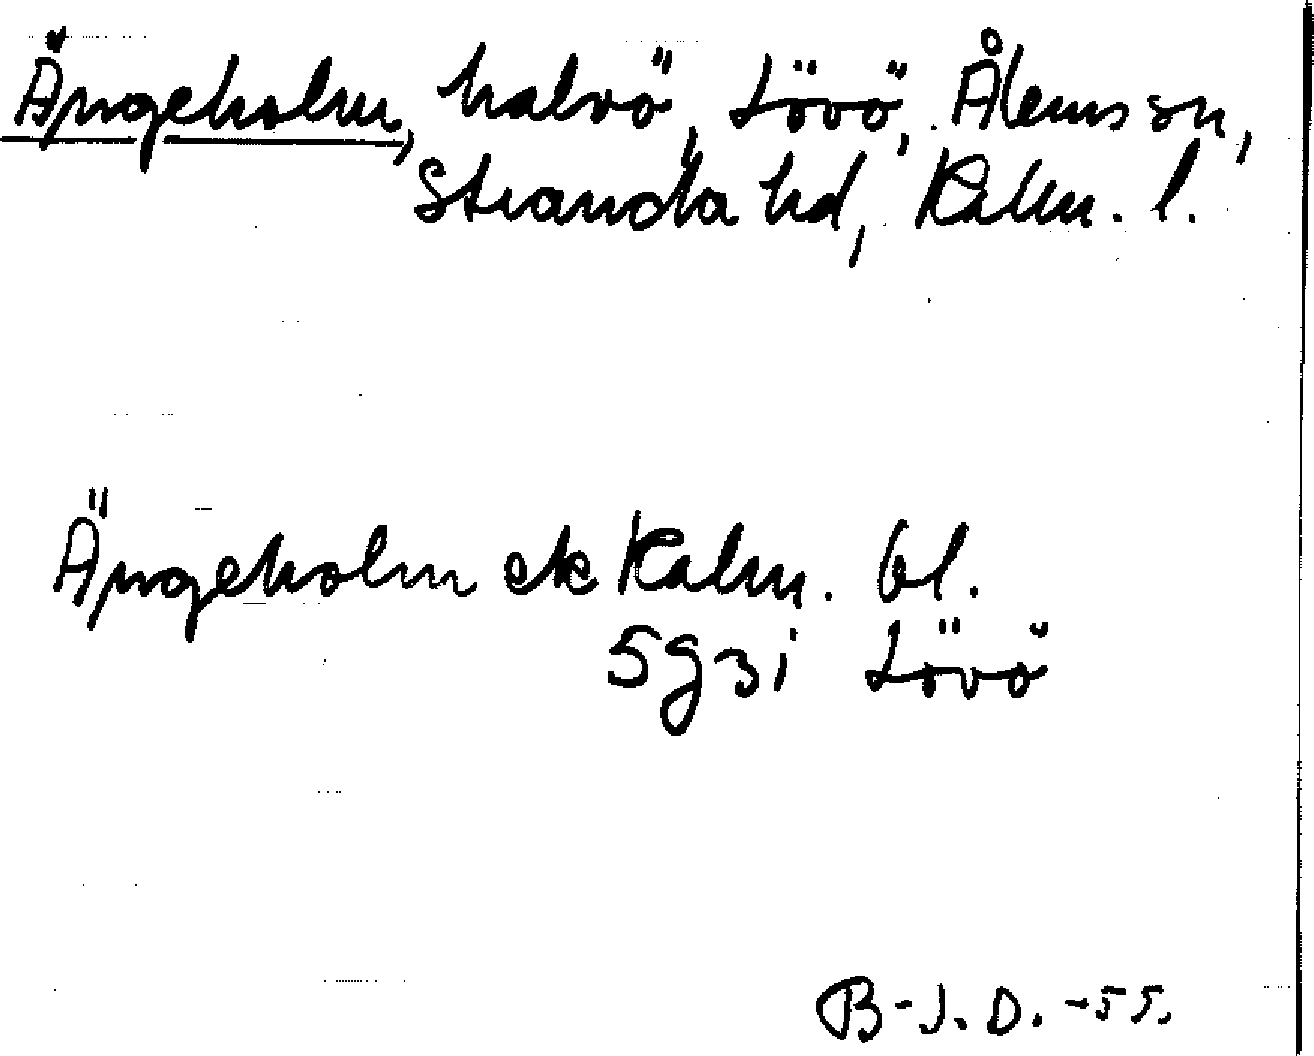 Ängeholm, halvö, Lövö, Ålems sn,
Stranda hd, Kalm. l.
Ängeholm ek Kalm. bl.
5g3i Lövö
B-J. D. -55.